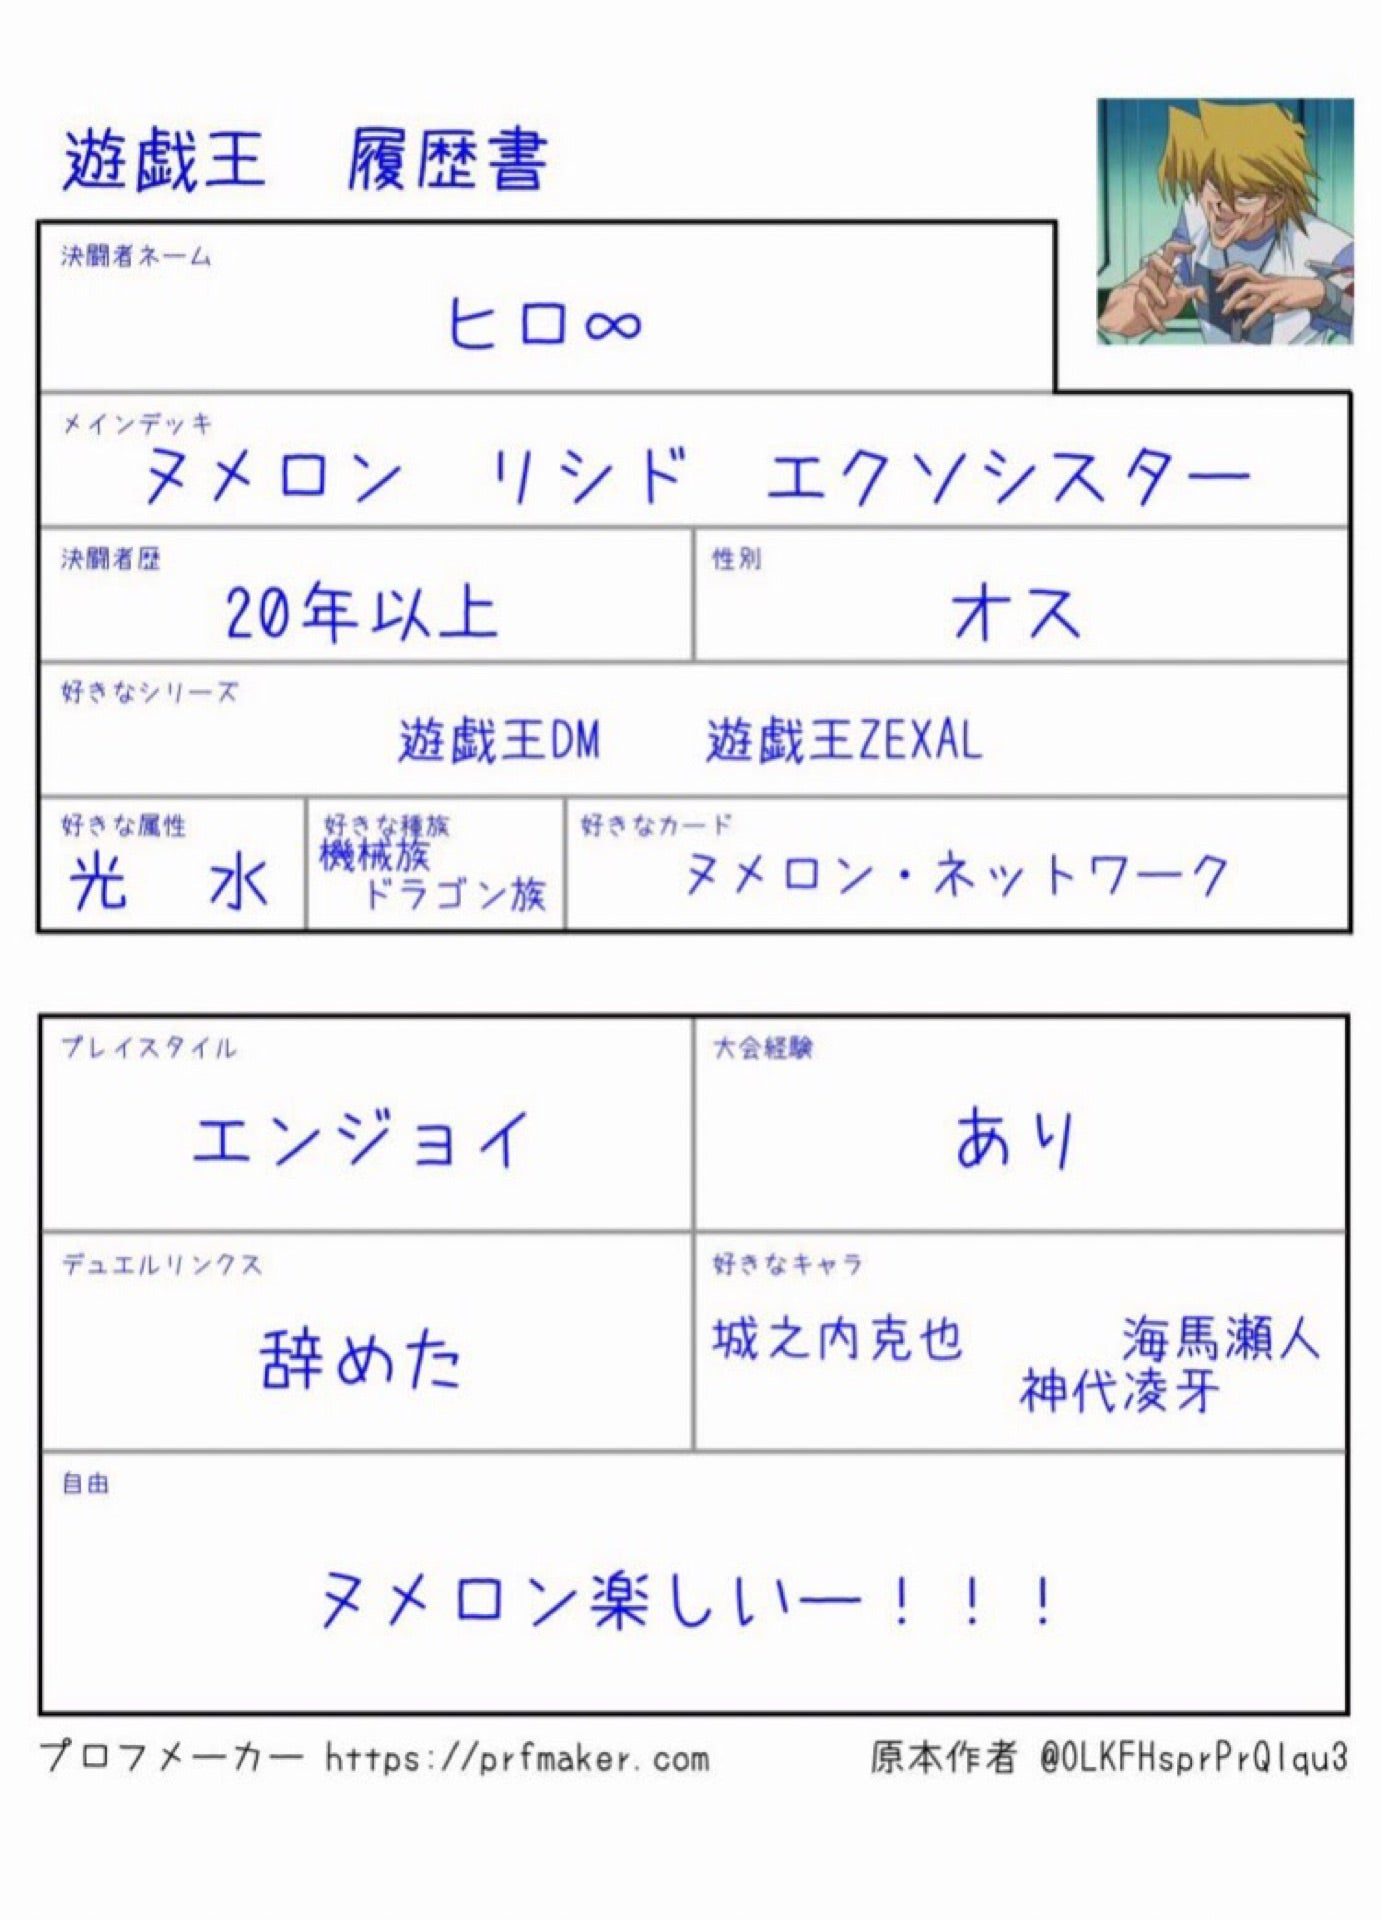 遊戯王　履歴書
決闘者ネーム
ヒロ∞
メインデッキ
ヌメロン　リシド　エクソシスター
決闘者歴
20年以上
性別
オス
好きなシリーズ
遊戯王DM　　遊戯王ZEXAL
好きな属性
光　水
好きな種族
機械族
ドラゴン族
好きなカード
ヌメロン・ネットワーク
プレイスタイル
エンジョイ
大会経験
あり
デュエルリンクス
辞めた
好きなキャラ
城之内克也　　　海馬瀬人
神代凌牙
自由
ヌメロン楽しいー！！！
プロフメーカー https://prfmaker.com
原本作者 @OLKFHsprPrQlqu3